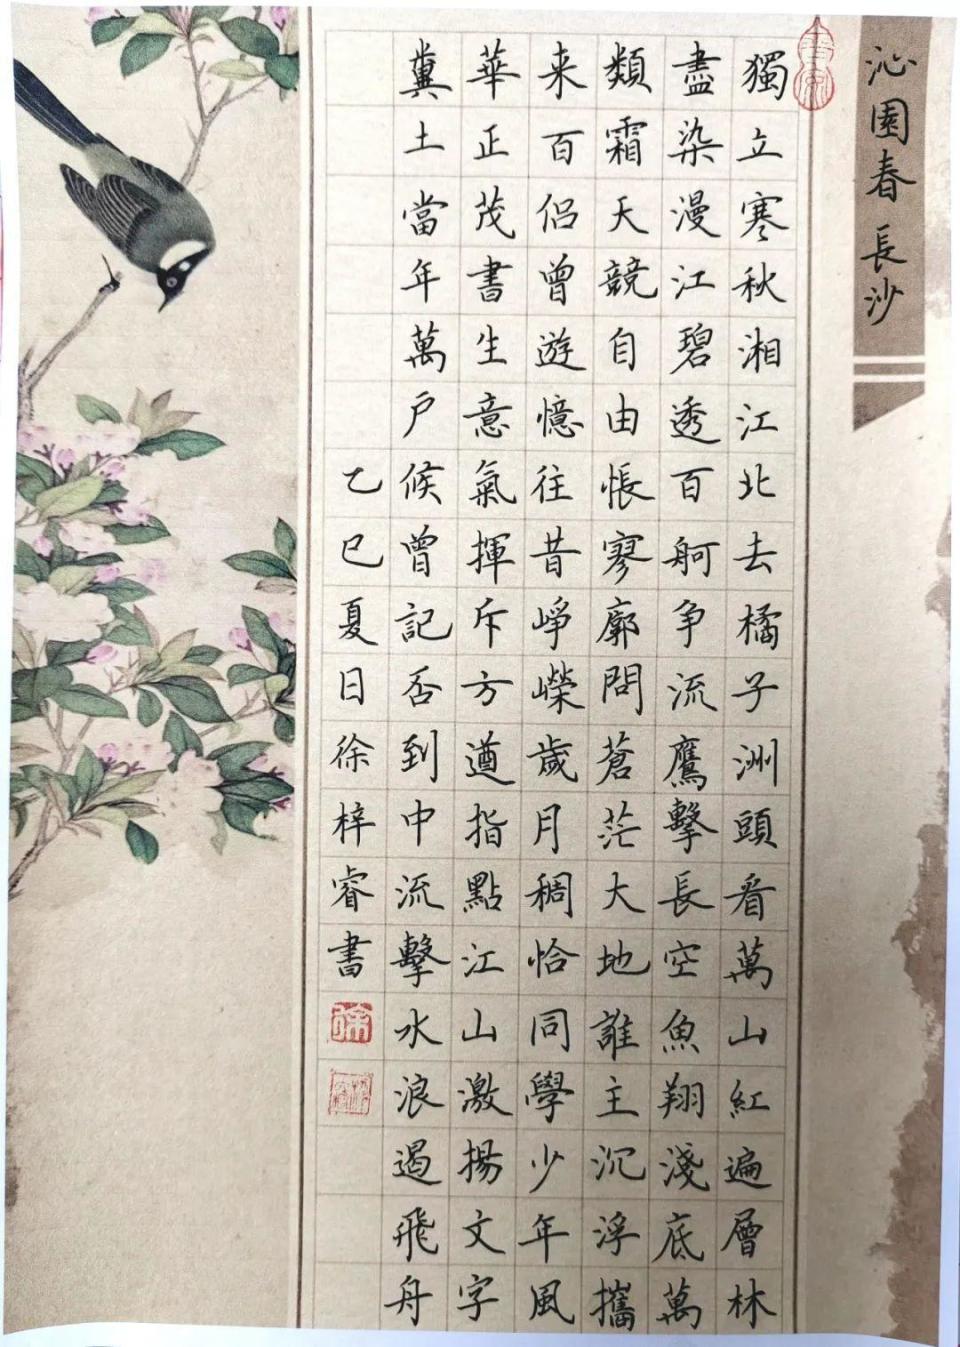 沁園春 長沙
獨立寒秋湘江北去橘子洲頭看萬山紅遍層林
盡染漫江碧透百舸争流鷹擊長空魚翔淺底萬
類霜天競自由悵寥廓問蒼茫大地誰主沉浮攜
来百侣曾遊憶往昔崢嶸歲月稠恰同學少年風
華正茂書生意氣揮斥方遒指點江山激揚文字
糞土當年萬户候曾記否到中流擊水浪遏飛舟
乙巳夏日徐梓睿書
徐
梓睿